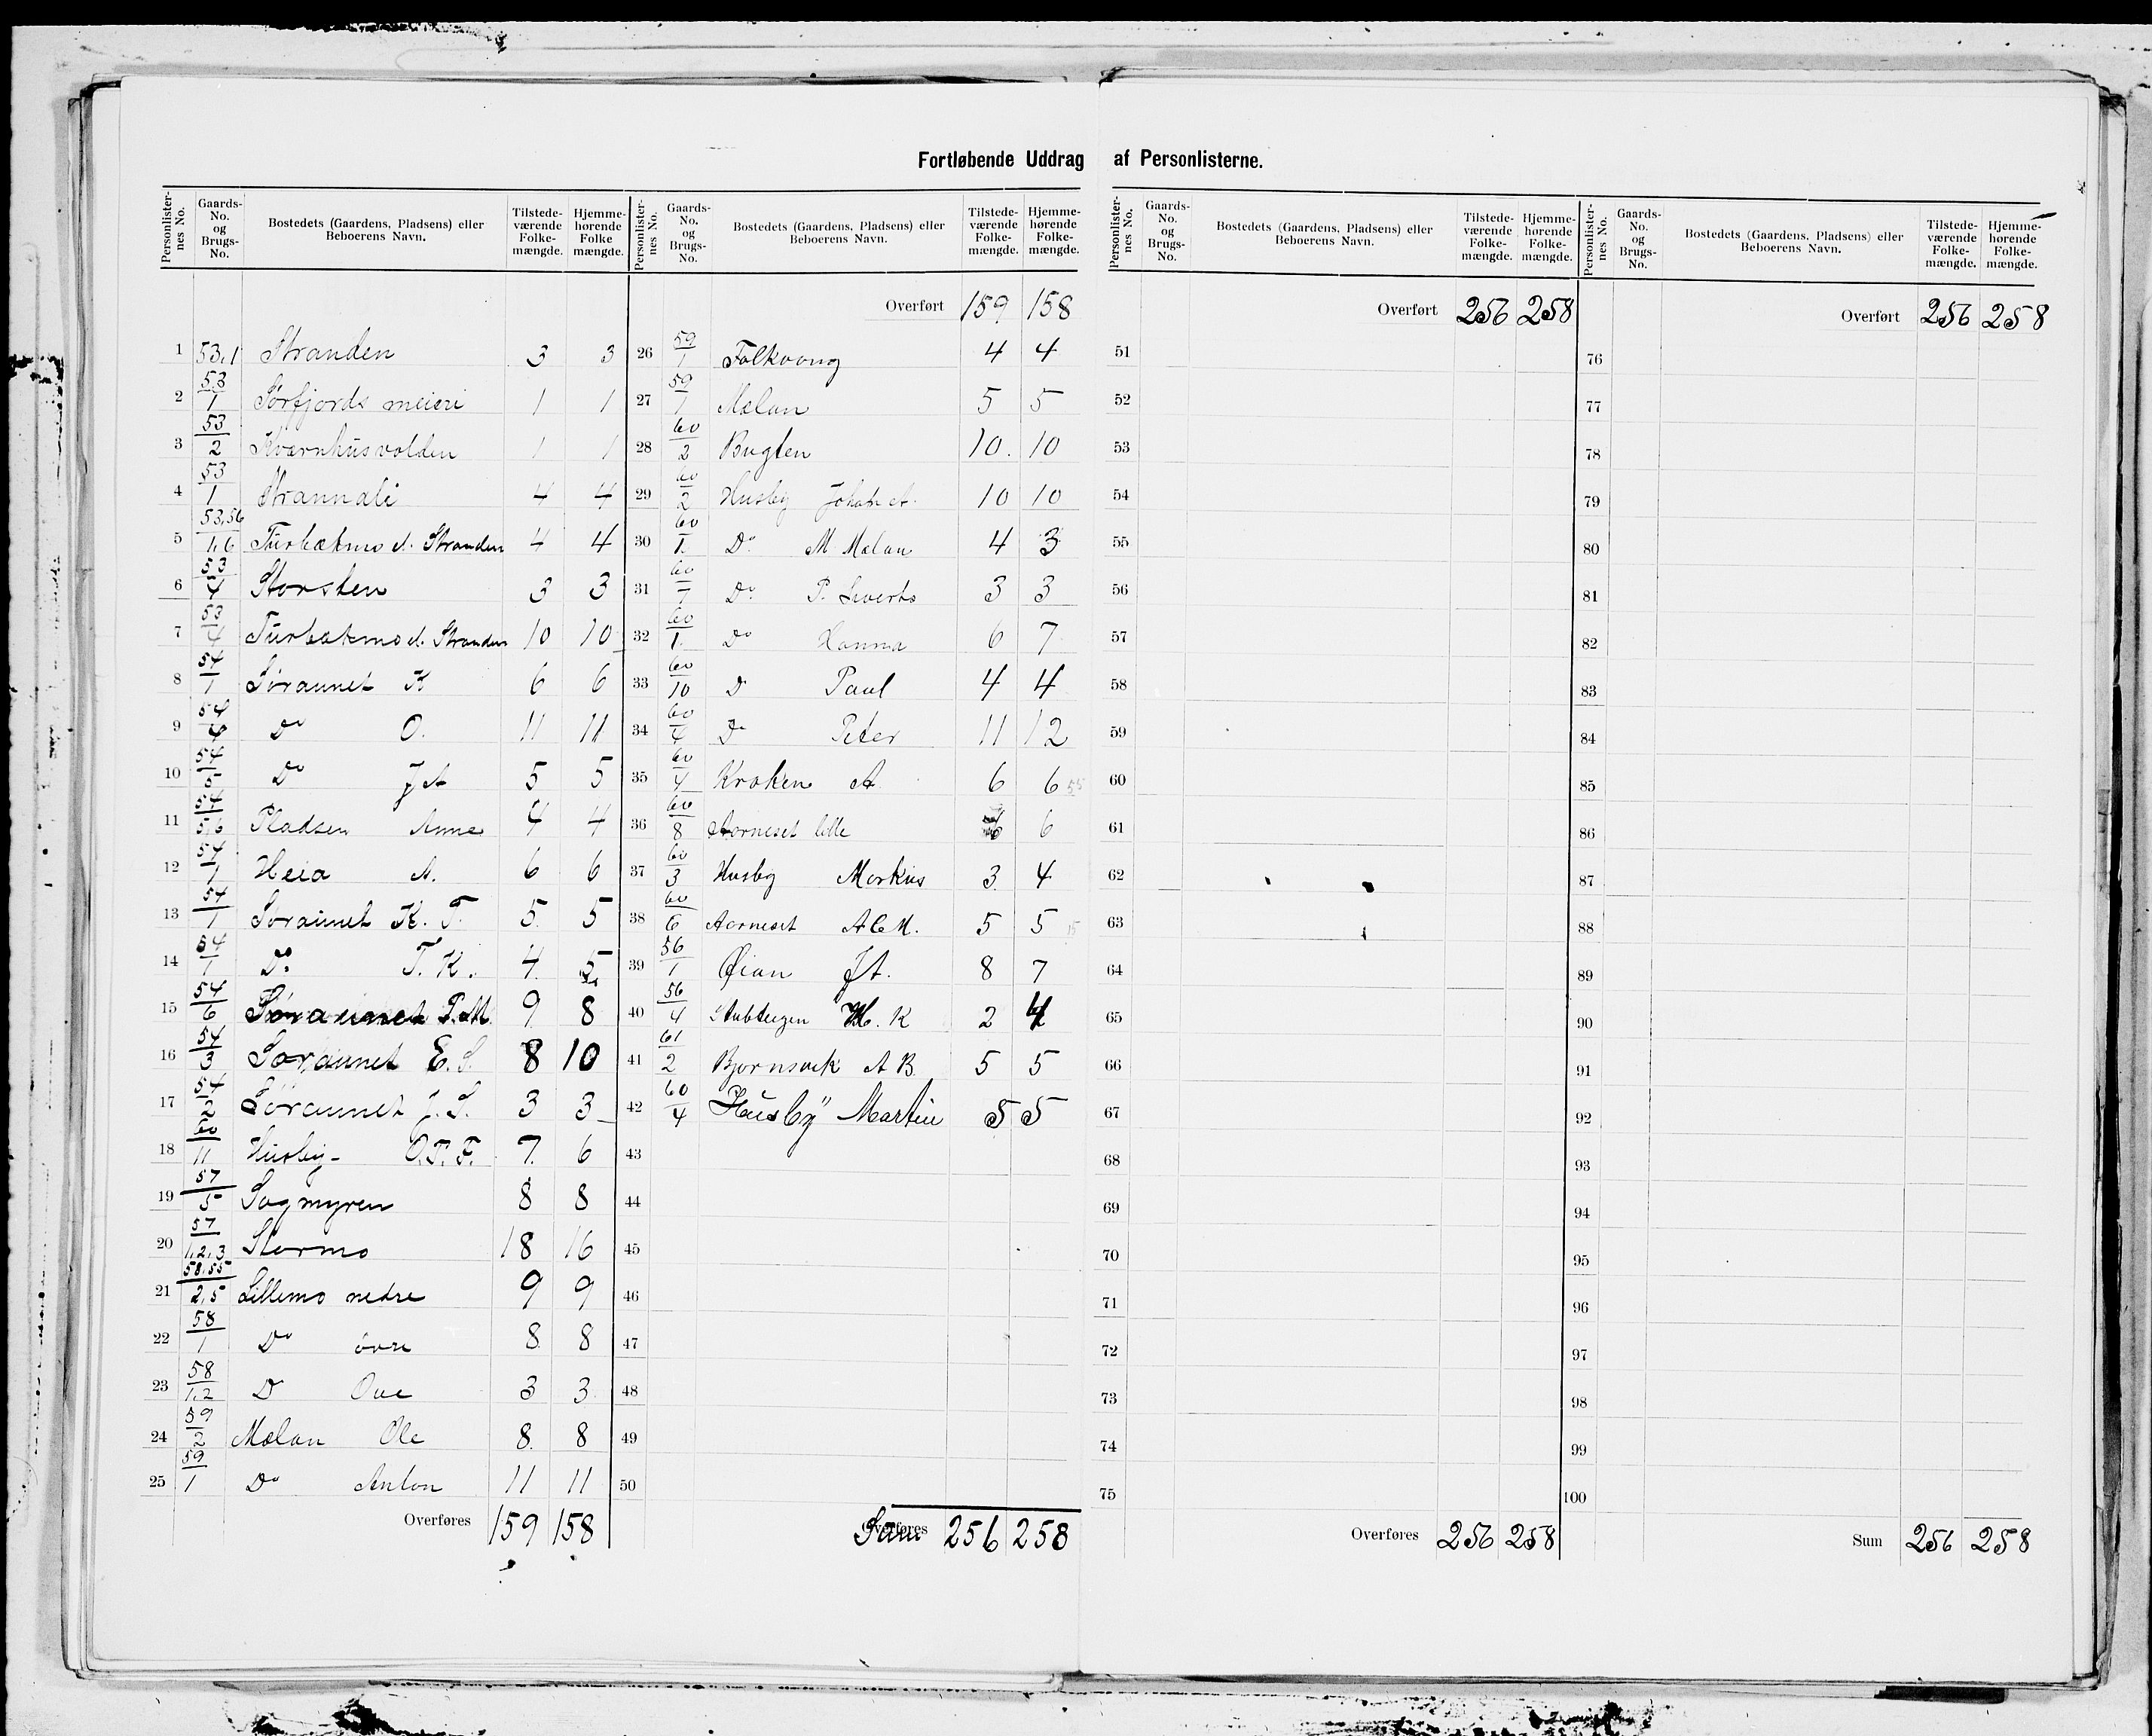 Fortløbende Uddrag af Personlisterne.
Personlisternes No. Gaards-No. og Brugs-No. Bostedets (Gaardens, Pladsens) eller Beboerens Navn. Tilstedeværende Folkemængde. Hjemmehørende Folkemængde.
1 53,1 Stranden 3 3
2 53/1 Sørfjords meieri 1 1
3 53/2 Kværnhusvolden 1 1
4 53/1 Strannali 4 4
5 53,56/1,6 Turbækmo d. Stranden 4 4
6 53/4 Storsten 3 3
7 53/4 Turbækmo d. Stranden 10 10
8 54/1 Søraunet K 6 6
9 54/4 Do O. 11 11
10 54/5 Do J A 5 5
11 54/5,6 Pladsen Anne 4 4
12 54/1 Heia A. 6 6
13 54/1 Søraunet K. T. 5 5
14 54/1 Do T. K. 4 5
15 54/6 Søraunet P. M. 9 8
16 54/3 Søraunet E. S. 8 10
17 54/2 Søraunet J. S. 3 3
18 60/11 Husby- O. P. F. 7 6
19 57/5 Sagmyren 8 8
20 57/1,2,3 Stormo 18 16
21 58,55/2,5 Lillemo nedre 9 9
22 58/1 Do övre 8 8
23 58/1,2 D Ove 3 3
24 59/2 Mælan Ole 8 8
25 59/1 Do Anton 11 11
Overføres 159 158
Personlisternes No. Gaards-No. og Brugs-No. Bostedets (Gaardens, Pladsens) eller Beboerens Navn. Tilstedeværende Folkemængde. Hjemmehørende Folkemængde.
Overført 159 158
26 59/1 Falkvang 4 4
27 59/1 Mælan 5 5
28 60/2 Bugten 10. 10
29 60/2 Husby Johan A. 10 10
30 60/1. Do M Mælan 4 3
31 60/7 Do P. Siverts 3 3
32 60/1. Do Hanna 6 7
33 60/10 D Paul 4 4
34 60/4 Do Peter 11 12
35 60/4 Kroken A 6 6
36 60/8 Aarneset lille 6 6
37 60/3 Husby Markus 3 4
38 60/6 Aarneset A C M. 5 5
39 56/1 Øian J A. 8 7
40 56/4 H. K 2 4
41 61/2 Bjørnsvik A B. 5 5
42 60/4 Husby Martin 5 5
43
44
45
46
47
48
49
50
Overføres Sum 256 258
Personlisternes No. Gaards-No. og Brugs-No. Bostedets (Gaardens, Pladsens) eller Beboerens Navn. Tilstedeværende Folkemængde. Hjemmehørende Folkemængde.
Overført 256 258
51
52
53
54
55
56
57
58
59
60
61
62
63
64
65
66
67
68
69
70
71
72
73
74
75
Overføres 256 258
Personlisternes No. Gaards-No. og Brugs-No. Bostedets (Gaardens, Pladsens) eller Beboerens Navn. Tilstedeværende Folkemængde. Hjemmehørende Folkemængde.
Overført 256 258
76
77
78
79
80
81
82
83
84
85
86
87
88
89
90
91
92
93
94
95
96
97
98
99
100
Sum 256 258